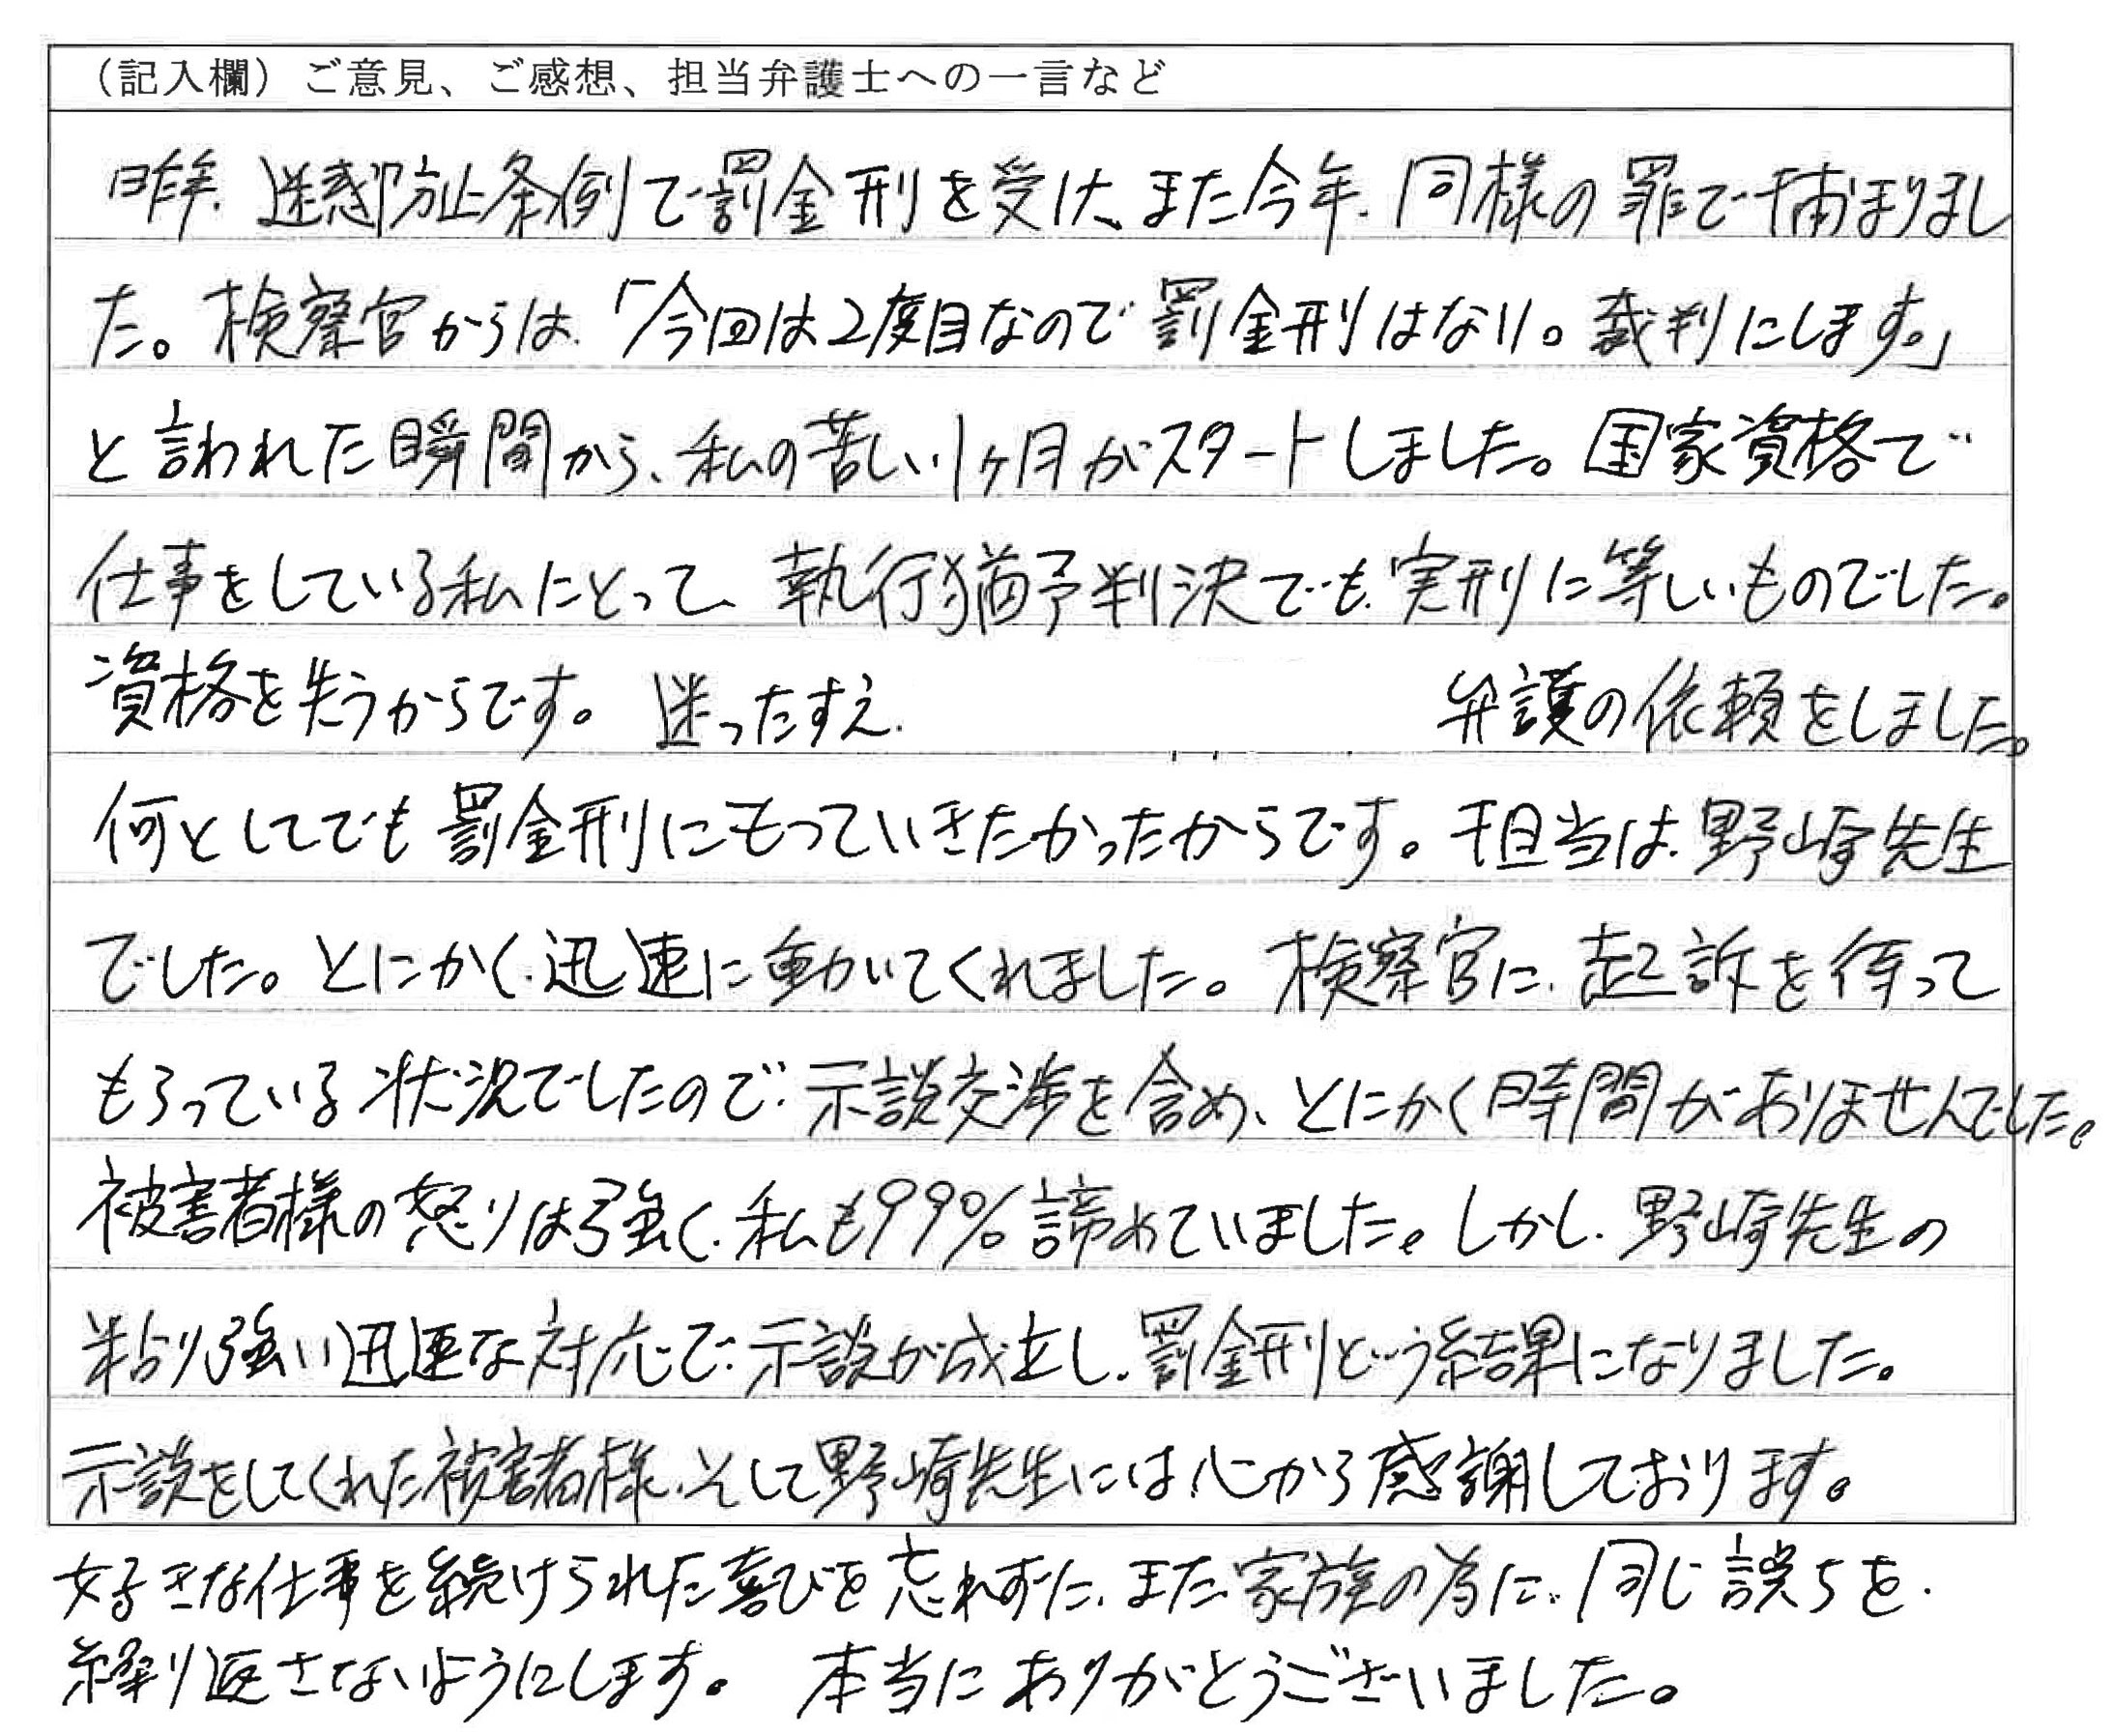 （記入欄）ご意見、ご感想、担当弁護士への一言など
昨年、迷惑防止条例で罰金刑を受け、また今年、同様の罪で捕まりまし
た。検察官からは、「今回は2度目なので罰金刑はない。裁判にします。」
と言われた瞬間から、私の苦しい1ヶ月がスタートしました。国家資格で
仕事をしている私にとって、執行猶予判決でも、実刑に等しいものでした。
資格を失うからです。迷ったすえ、弁護の依頼をしました。
何としてでも罰金刑にもっていきたかったからです。担当は、野崎先生
でした。とにかく、迅速に動いてくれました。検察官に、起訴を待って
もらっている状況でしたので、示談交渉を含め、とにかく時間がありませんでした。
被害者様の怒りは強く、私も99%諦めていました。しかし、野崎先生の
粘り強い迅速な対応で、示談が成立し、罰金刑という結果になりました。
示談をしてくれた被害者様、そして野崎先生には心から感謝しております。
好きな仕事を続けられた喜びを忘れずに、また家族の為に、同じ誤ちを、
繰り返さないようにします。本当にありがとうございました。